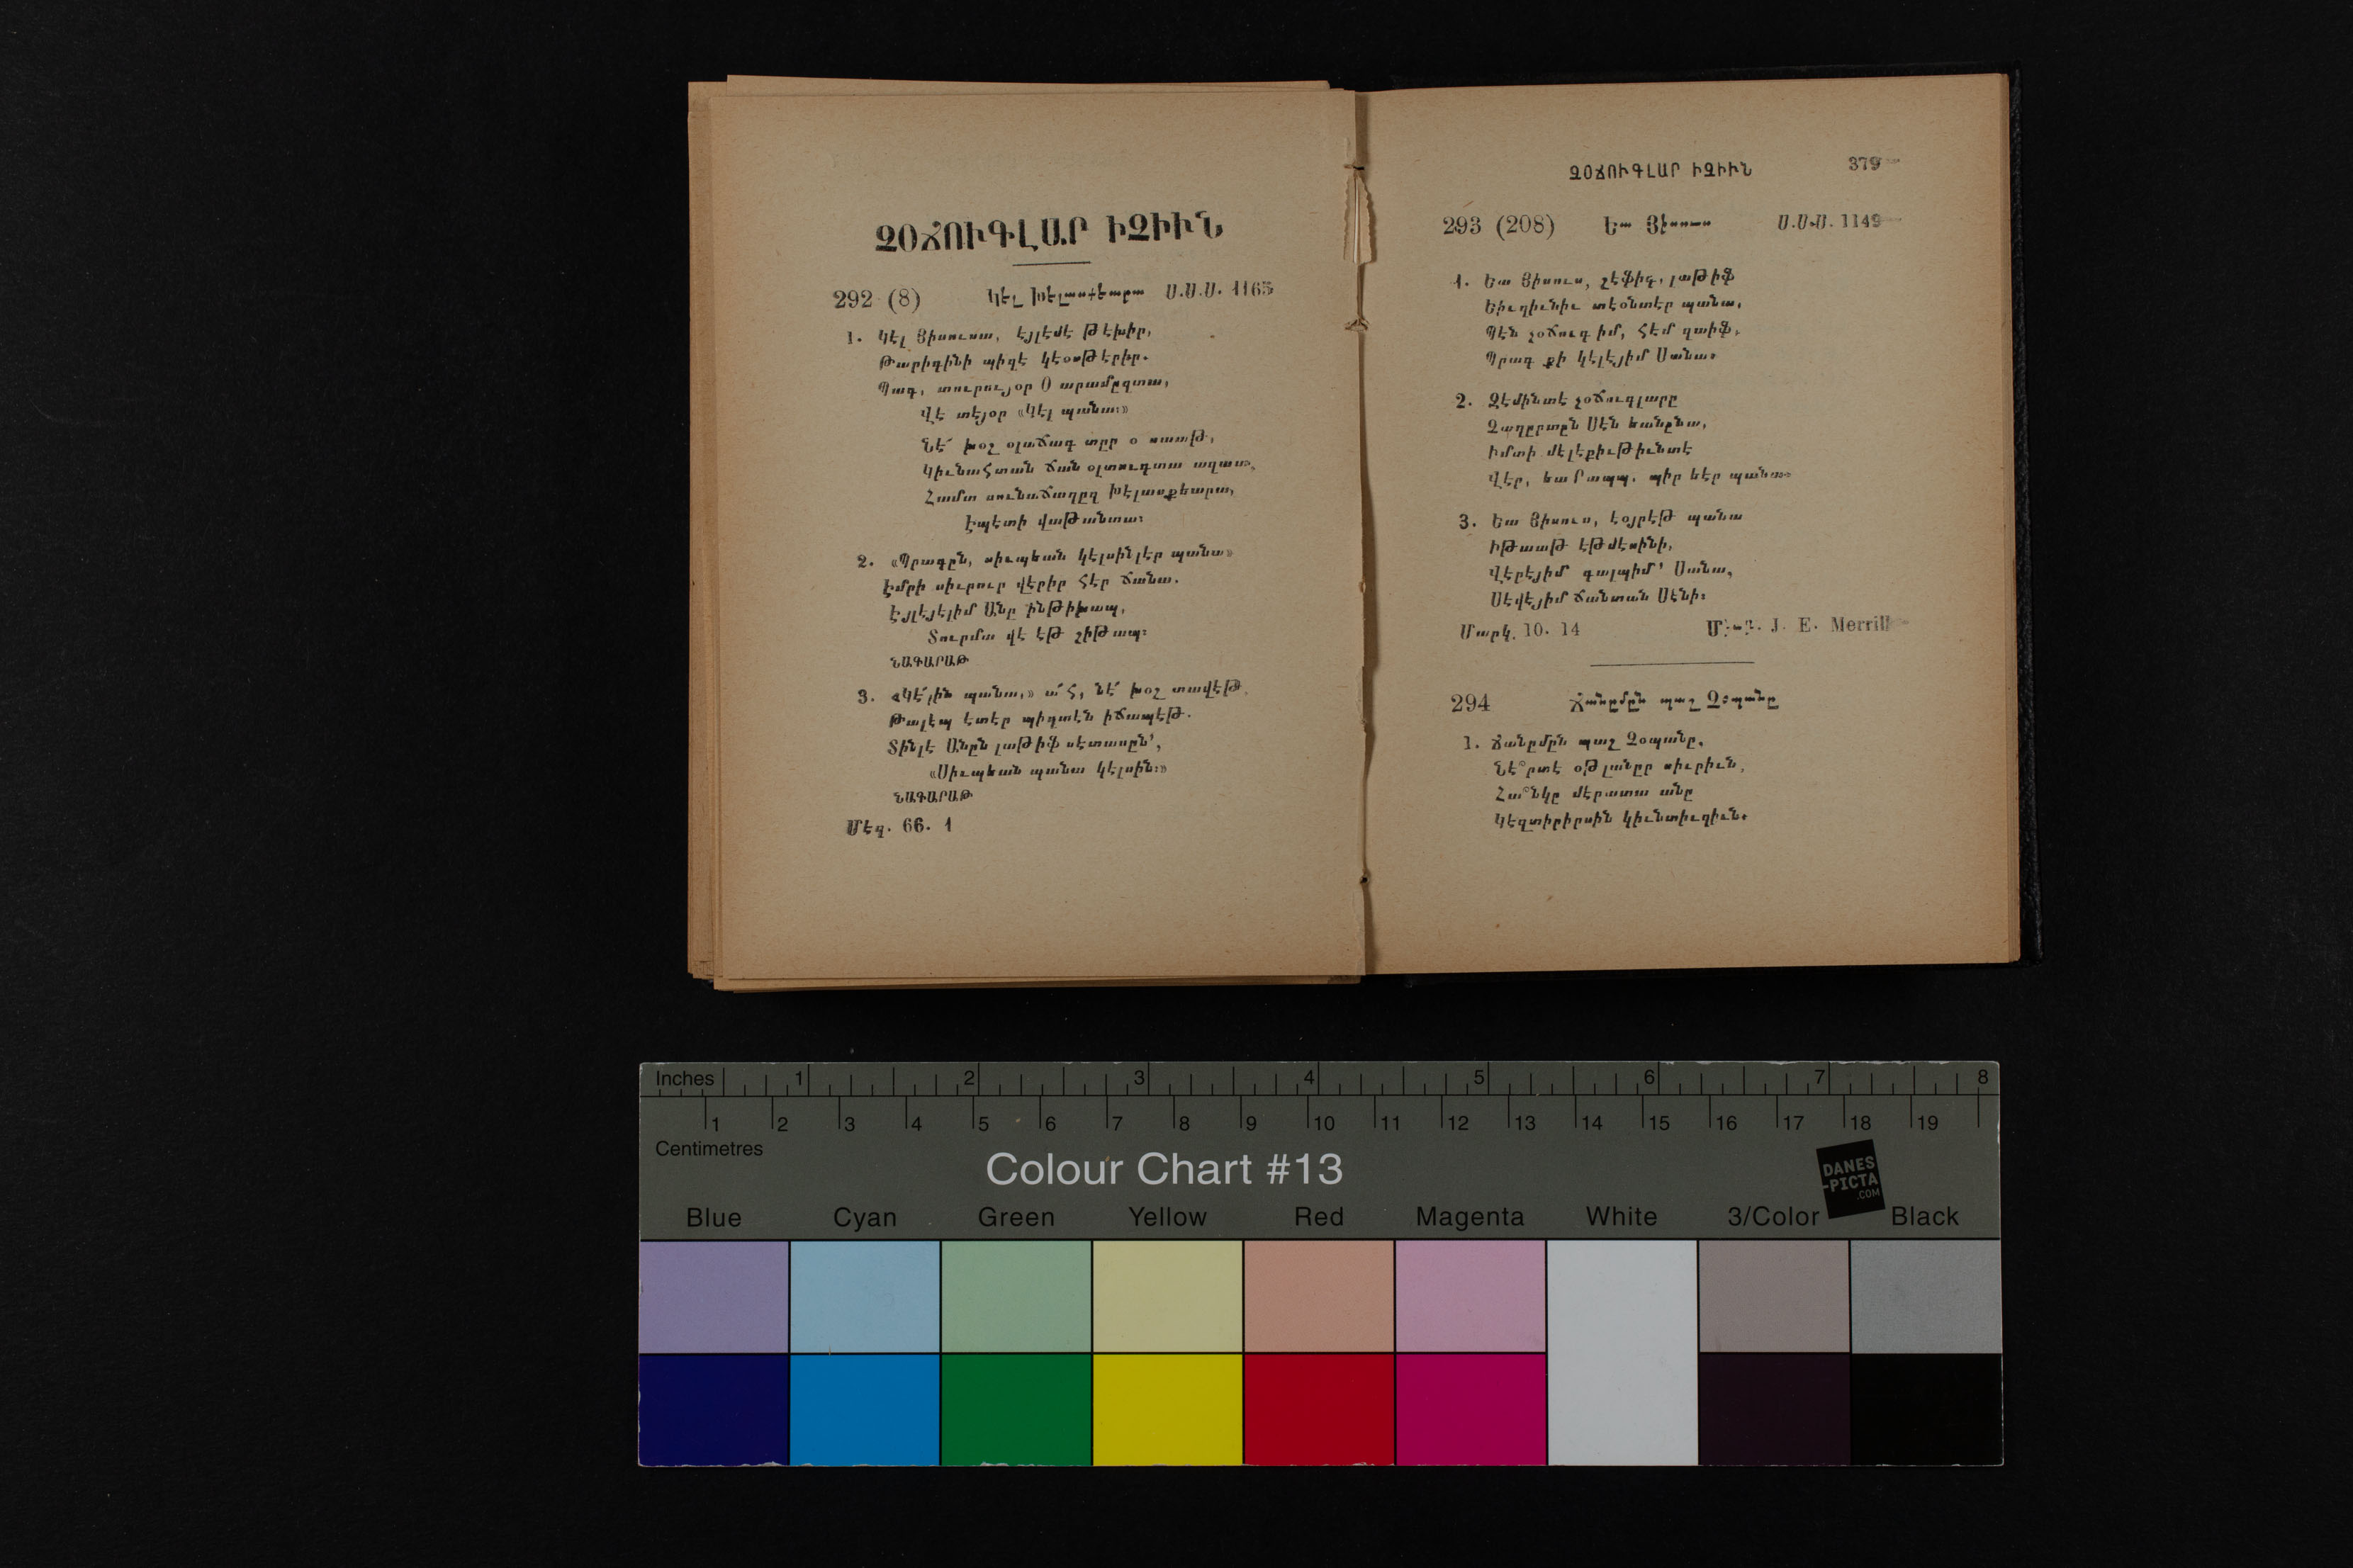 ՉՕՃՈՒԳԼԱՐ ԻՉԻՒՆ
292 (8) Կէլ Խէլասքեարա Ս.Ս.Ս. 1165
1. Կէլ Յիսուսա, էյլէմէ թէխիր,
Թարիգինի պիզէ կէօսթէրիր.
Պագ, տուրույօր Օ արամըզտա,
Վէ տէյօր «Կէլ պանա։»
Նէ՛ խօշ օլաճագ տըր օ սաաթ,
Կիւնահտան ճան օլտուգտա ազատ,
Համտ սունաճաղըզ Խէլասքեարա,
Էպէտի վաթանտա։
2. «Պրագըն, սիւպեան կէլսինլէր պանա»
Էմրի սիւրուր վէրիր հէր ճանա.
Էյլէյէլիմ Անը ինթիխապ,
Տուրմա վէ էթ շիթապ։
ՆԱԳԱՐԱԹ
3. «Կէ՛լին պանա,» ա՛հ, նէ՛ խօշ տավէթ,
Թալէպ էտէր պիզտէն իճապէթ.
Տինլէ Անըն լաթիֆ սէտասըն՛,
«Սիւպեան պանա կէլսին։»
ՆԱԳԱՐԱԹ
Մեզ. 66. 1
ՉՕՃՈՒԳԼԱՐ ԻՉԻՒՆ 379
293 (208) Եա Յիսուս Ս.Ս.Ս. 1149
1. Եա Յիսուս, շէֆիգ, լաթիֆ
Եիւզիւնիւ տէօնտէր պանա,
Պէն չօճուգ իմ, հէմ զաիֆ,
Պրագ քի կէլէյիմ Սանա։
2. Զէմինտէ չօճուգլարը
Չաղըրտըն Սէն եանընա,
Իմտի մէլէքիւթիւնտէ
Վէր, եա Րապպ, պիր եէր պանա։
3. Եա Յիսուս, էօյրէթ պանա
Իթաաթ էթմէսինի,
Վէրէյիմ գալպիմ՛ Սանա,
Սէվէյիմ ճանտան Սէնի։
Մարկ. 10. 14 J. E. Merrill
294 Ճանըմըն պաշ Չօպանը
1. Ճանըմըն պաշ Չօպանը,
Նէ՞րտէ օթլանըր սիւրիւն,
Հա՞նկը մէրատա անը
Կէզտիրիրսին կիւնտիւզիւն.
Inches 1 2 3 4 5 6 7 8
1 2 3 4 5 6 7 8 9 10 11 12 13 14 15 16 17 18 19
Centimetres
Colour Chart #13
DANES
-PICTA
.COM
Blue Cyan Green Yellow Red Magenta White 3/Color Black